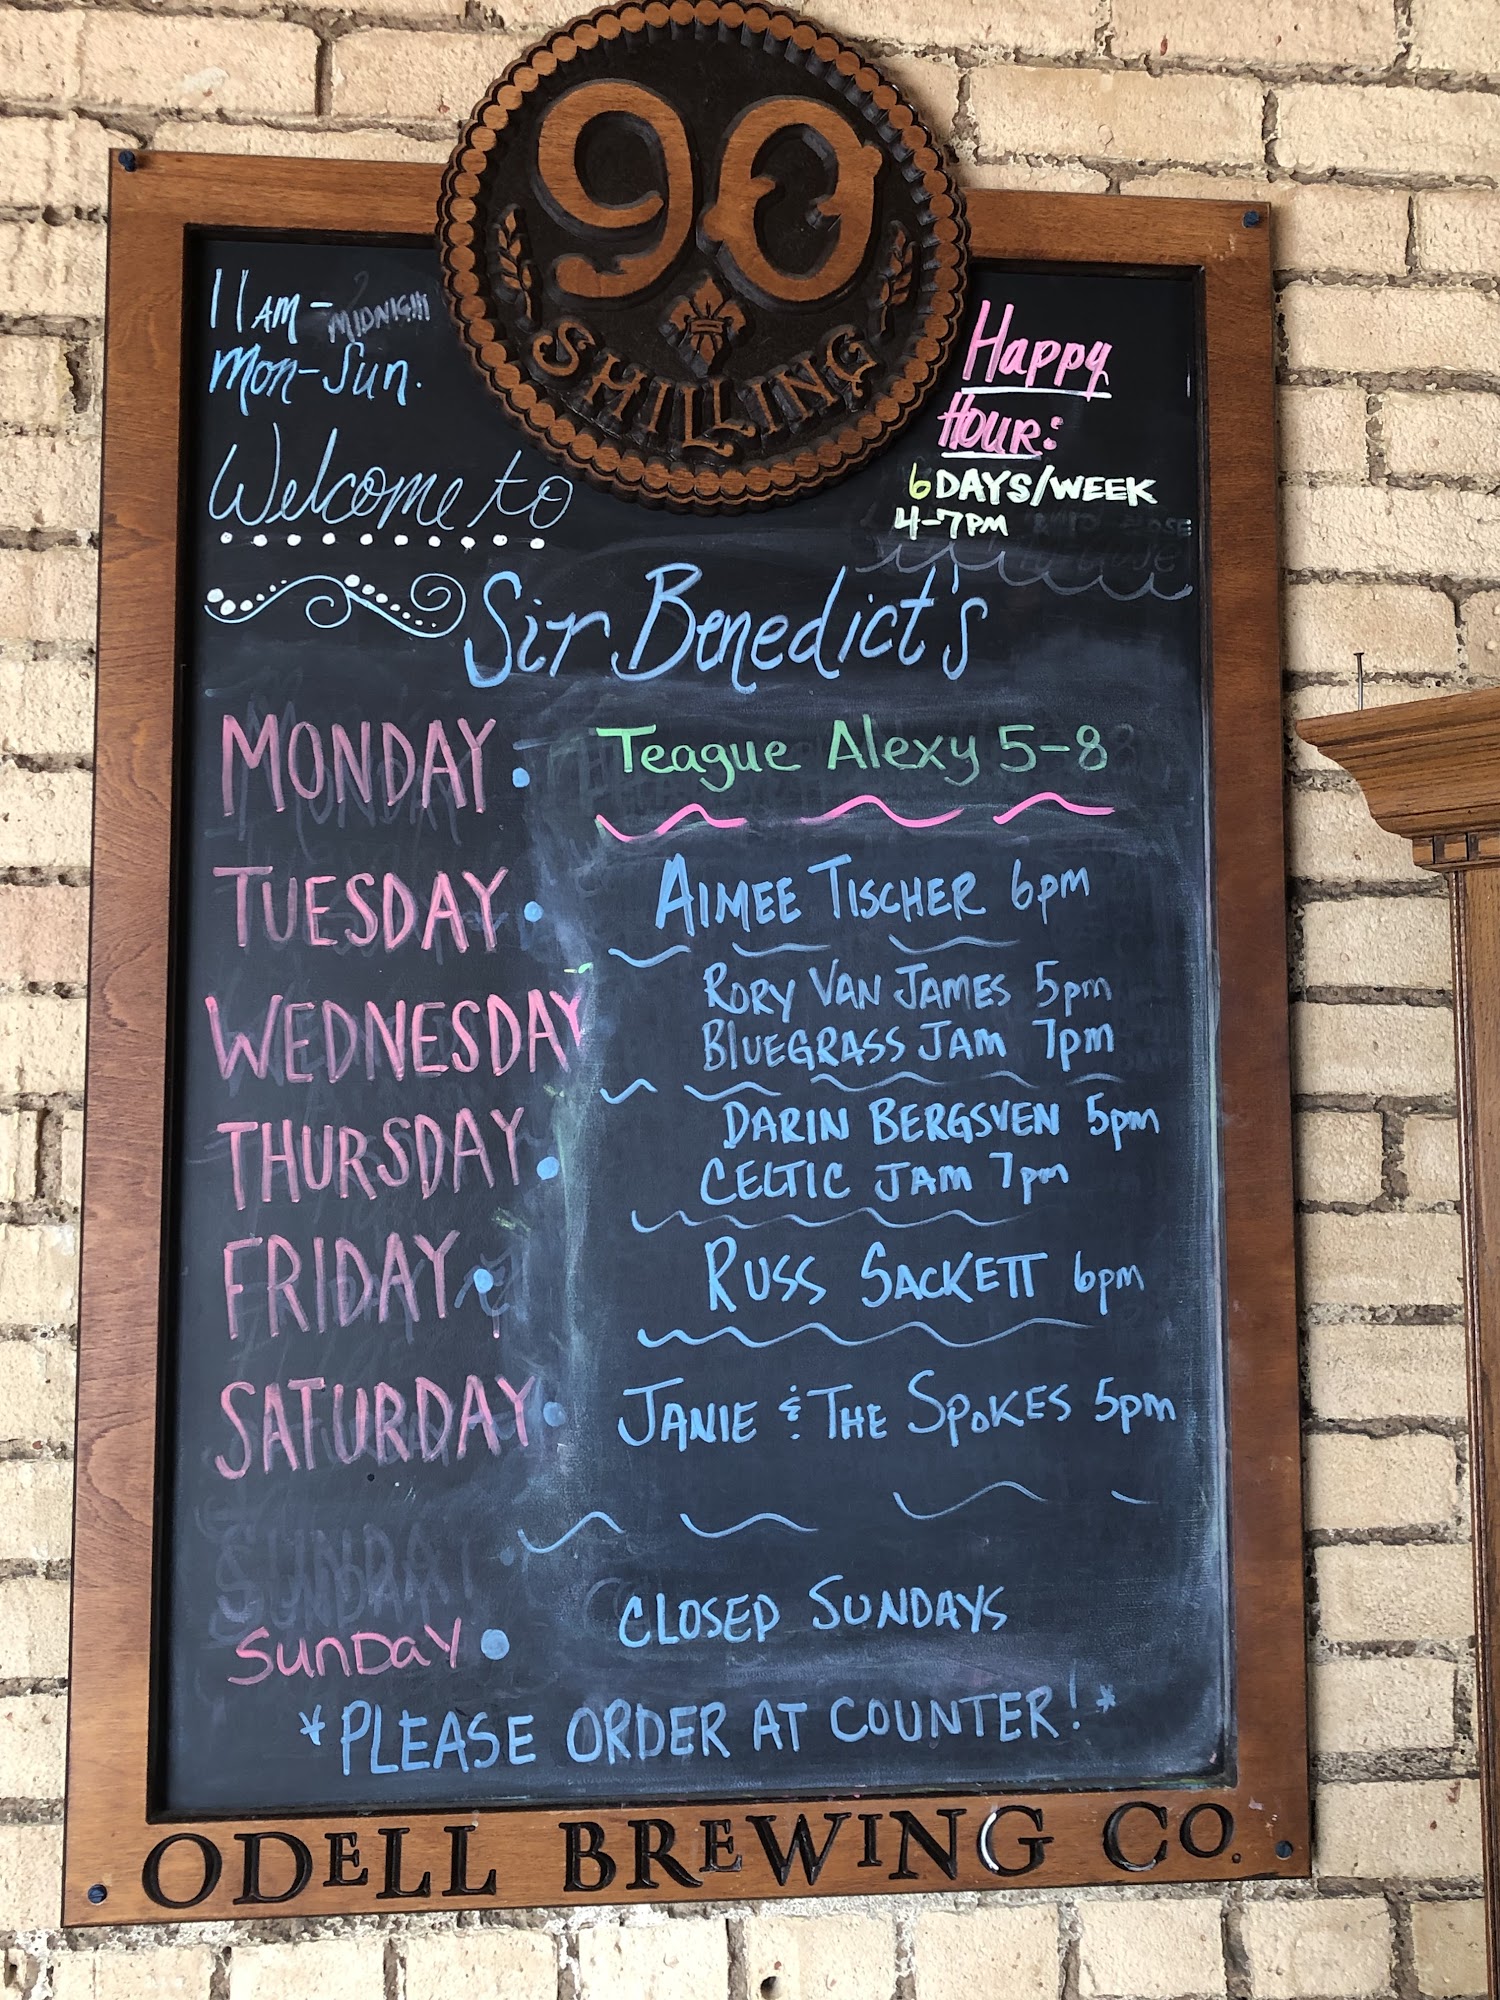 90
SHILLING
11AM-MIDNIGH
Mon-Sun.
Happy
HOUR:
6 DAYS/WEEK
4-7PM
Welcome to
Sir Benedict's
MONDAY • Teague Alexy 5-8
TUESDAY • AIMEE TISCHER 6pm
WEDNESDAY RORY VAN JAMES 5pm
BLUEGRASS JAM 7pm
THURSDAY • DARIN BERGSVEN 5pm
CELTIC JAM 7pm
FRIDAY • RUSS SACKETT 6pm
SATURDAY • JANIE & THE SPOKES 5pm
SUNDAY
SUNDAY • CLOSED SUNDAYS
*PLEASE ORDER AT COUNTER!*
ODELL BREWING CO.